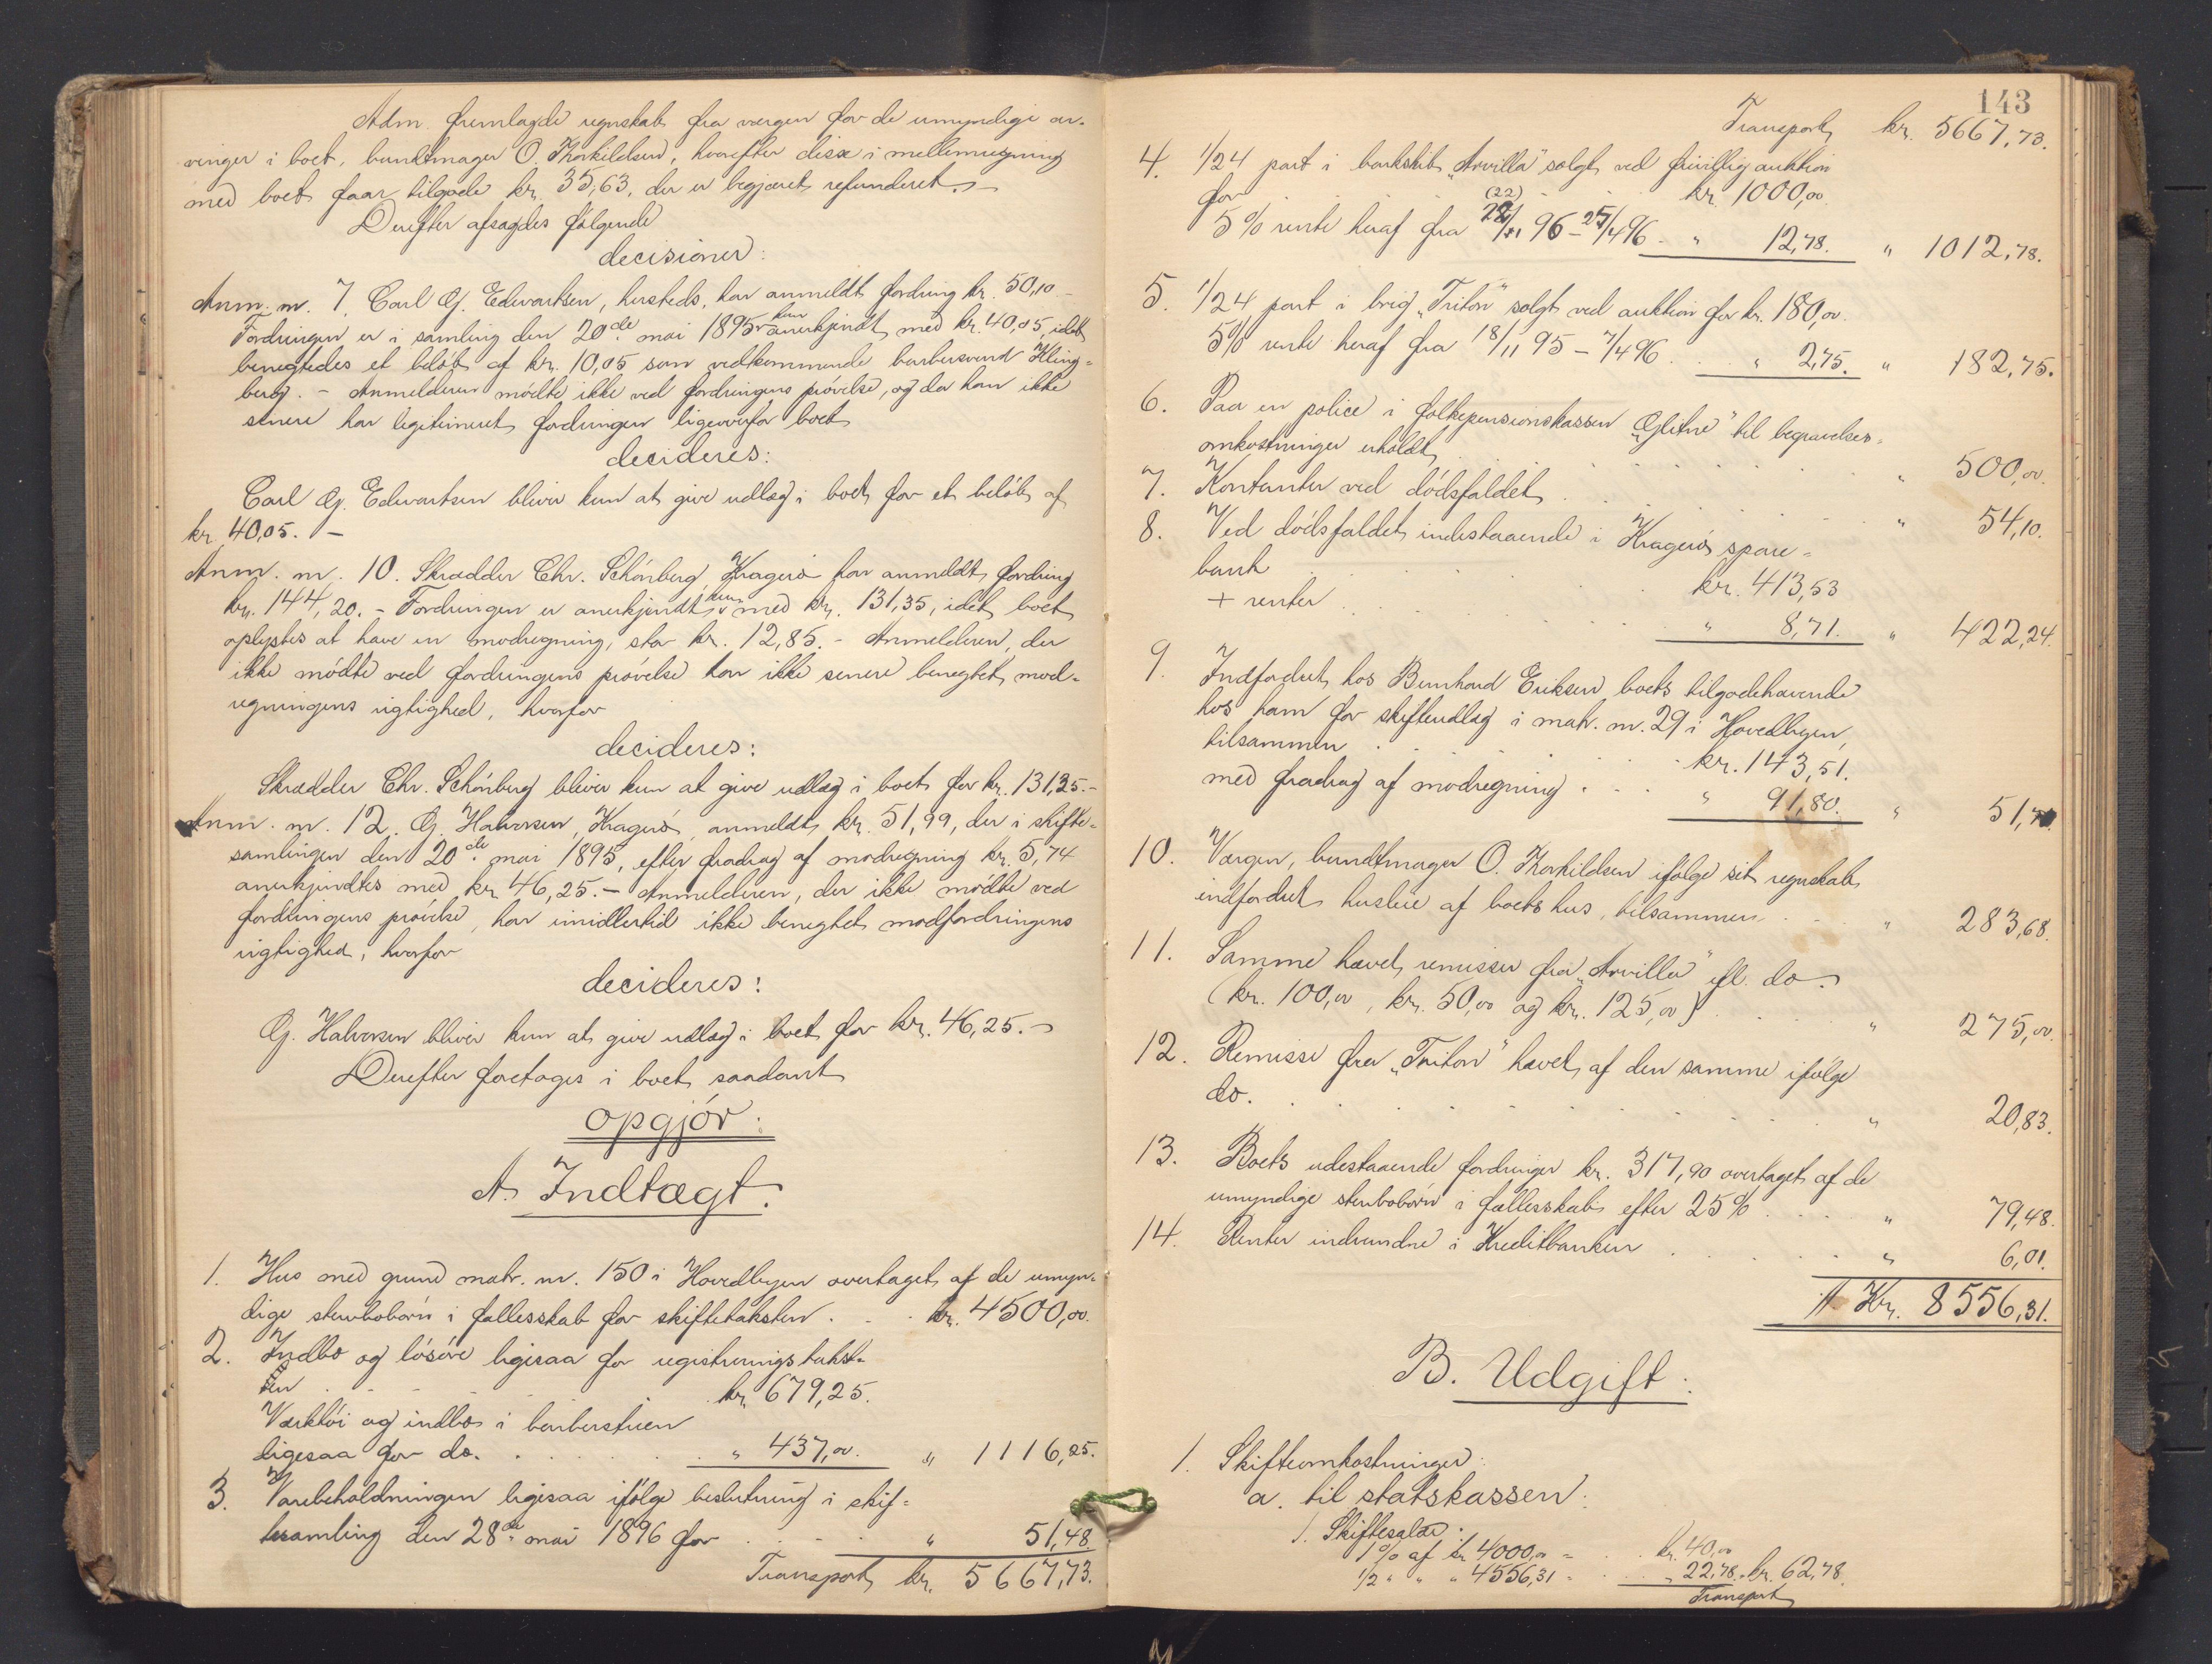 Adm. fremlagde regnskab fra værgen for de umyndige ar-
vinger i boet, bundtmager O. Thorkildsen, hvorefter disse i mellemregning
med boet faar tilgode kr. 35,63, der er begjæret refunderet. -
Derefter afsagdes følgende
decisioner:
Anm. nr. 7. Carl G. Edvartsen, hersteds, har anmeldt fordring kr. 50,10 -
Fordringen er i samling den 20de mai 1895 kun anerkjendt med kr. 40,05, idet
benegtedes et beløb af kr. 10,05 som vedkommende barbersvend Kling-
berg. - Anmelderen mødte ikke ved fordringens prøvelse, og da han ikke
senere har legitimeret fordringen ligeoverfor boet
decideres:
Carl G. Edvartsen bliver kun at give udlæg i boet for et beløb af
kr. 40,05. -
Anm. nr. 10. Skrædder Chr. Schönberg, Kragerø har anmeldt fordring
kr. 144,20. - Fordringen er anerkjendt kun med kr. 131,35, idet boet
oplystes at have en modregning, stor kr. 12,85. - Anmelderen, der
ikke mødte ved fordringens prøvelse har ikke senere benegtet mod-
regningens rigtighed, hvorfor
decideres:
Skrædder Chr. Schönberg bliver kun at give udlæg i boet for kr. 131,35. -
Anm. nr. 12. G. Halvorsen, Kragerø, anmeldt kr. 51,99, der i skifte-
samlingen den 20de mai 1895, efter fradrag af modregning kr. 5,74
anerkjendtes med kr. 46,25. - Anmelderen, der ikke mødte ved
fordringens prøvelse, har imidlertid ikke benegtet modfordringens
rigtighed, hvorfor
decideres:
G. Halvorsen bliver kun at give udlæg i boet for kr. 46,25. -
Derefter foretages i boet saadant
opgjør:
A. Indtægt.
1. Hus med grund matr. nr. 150 i Hovedbyen overtaget af de umyn-
dige stervbobørn i fællesskab for skiftetaksten . . . kr. 4500,00.
2. Indbo og løsøre ligesaa for registreringstakst-
en . . . kr. 679,25.
Værktøi og indbo i barberstuen
ligesaa for do. . . . " 437,00. " 1116,25.
3. Varebeholdningen ligesaa ifølge beslutning i skif-
tesamling den 28de mai 1896 for . . . " 51,48.
Transport kr. 5667,73.
143
Transport kr. 5667,73.
4. 1/24 part i barkskib "Arvilla" solgt ved frivillig auktion
for . . . kr. 1000,00.
(22)
5 % rente heraf fra 28/1 96 - 25/4 96 . " 12,78. " 1012,78.
5. 1/24 part i brig "Triton" solgt ved auktion for kr. 180,00.
5 % rente heraf fra 18/11 95 - 7/4 96 . . " 2,75. " 182,75.
6. Paa en police i folkepensionskassen "Glitne" til begravelses-
omkostninger erholdt . . . " 500,00.
7. Kontanter ved dødsfaldet . . . " 54,10.
8. Ved dødsfaldet indestaaende i Kragerø spare-
bank . . . kr. 413,53
+ renter . . . " 8,71. " 422,24.
9. Indfordret hos Bernhard Eriksen boets tilgodehavende
hos ham for skifteudlæg i matr. nr. 29 i Hovedbyen,
tilsammen . . . kr. 143,51.
med fradrag af modregning . . . " 91,80. " 51,71.
10. Værgen, bundtmager O. Thorkildsen ifølge sit regnskab
indfordret husleie af boets hus, tilsammen . . . " 283,68.
11. Samme hævet remisser fra "Arvilla" ifl. do.
(kr. 100,00, kr. 50,00 og kr. 125,00) . . . " 275,00.
12. Remisse fra "Triton" hævet af den samme ifølge
do. . . . " 20,83.
13. Boets udestaaende fordringer kr. 317,90 overtaget af de
umyndige stervbobørn i fællesskab efter 25 % . . . " 79,48.
14. Renter indvundne i Kreditbanken . . . " 6,01.
A Kr. 8556,31.
B. Udgift:
1. Skifteomkostninger:
a. til statskassen:
1. Skiftesalær:
1 % af kr. 4000,00 = . . kr. 40,00
1/2 " " " 4556,31 = . . " 22,78. kr. 62,78.
Transport